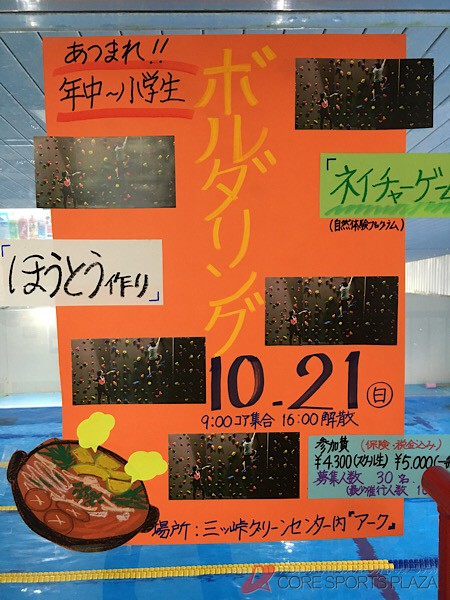 あつまれ!!
年中〜小学生
ボルダリング
「ネイチャーゲー
(自然体験プログラム)
「ほうとう作り」
10.21(日)
9:00コア集合 16:00解散
参加費 (保険・税金込み)
¥4,300(スクール生) ¥5,000(一
募集人数 30名
(最少催行人数 1
場所:三ッ峠グリーンセンター内『アーク』
CORE SPORTS PLAZA